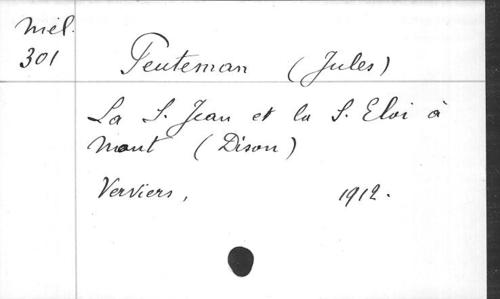 Mél.
301
Feuteman (Jules)
La S. Jean et la S. Eloi à
Mont (Dison)
Verviers, 1912.